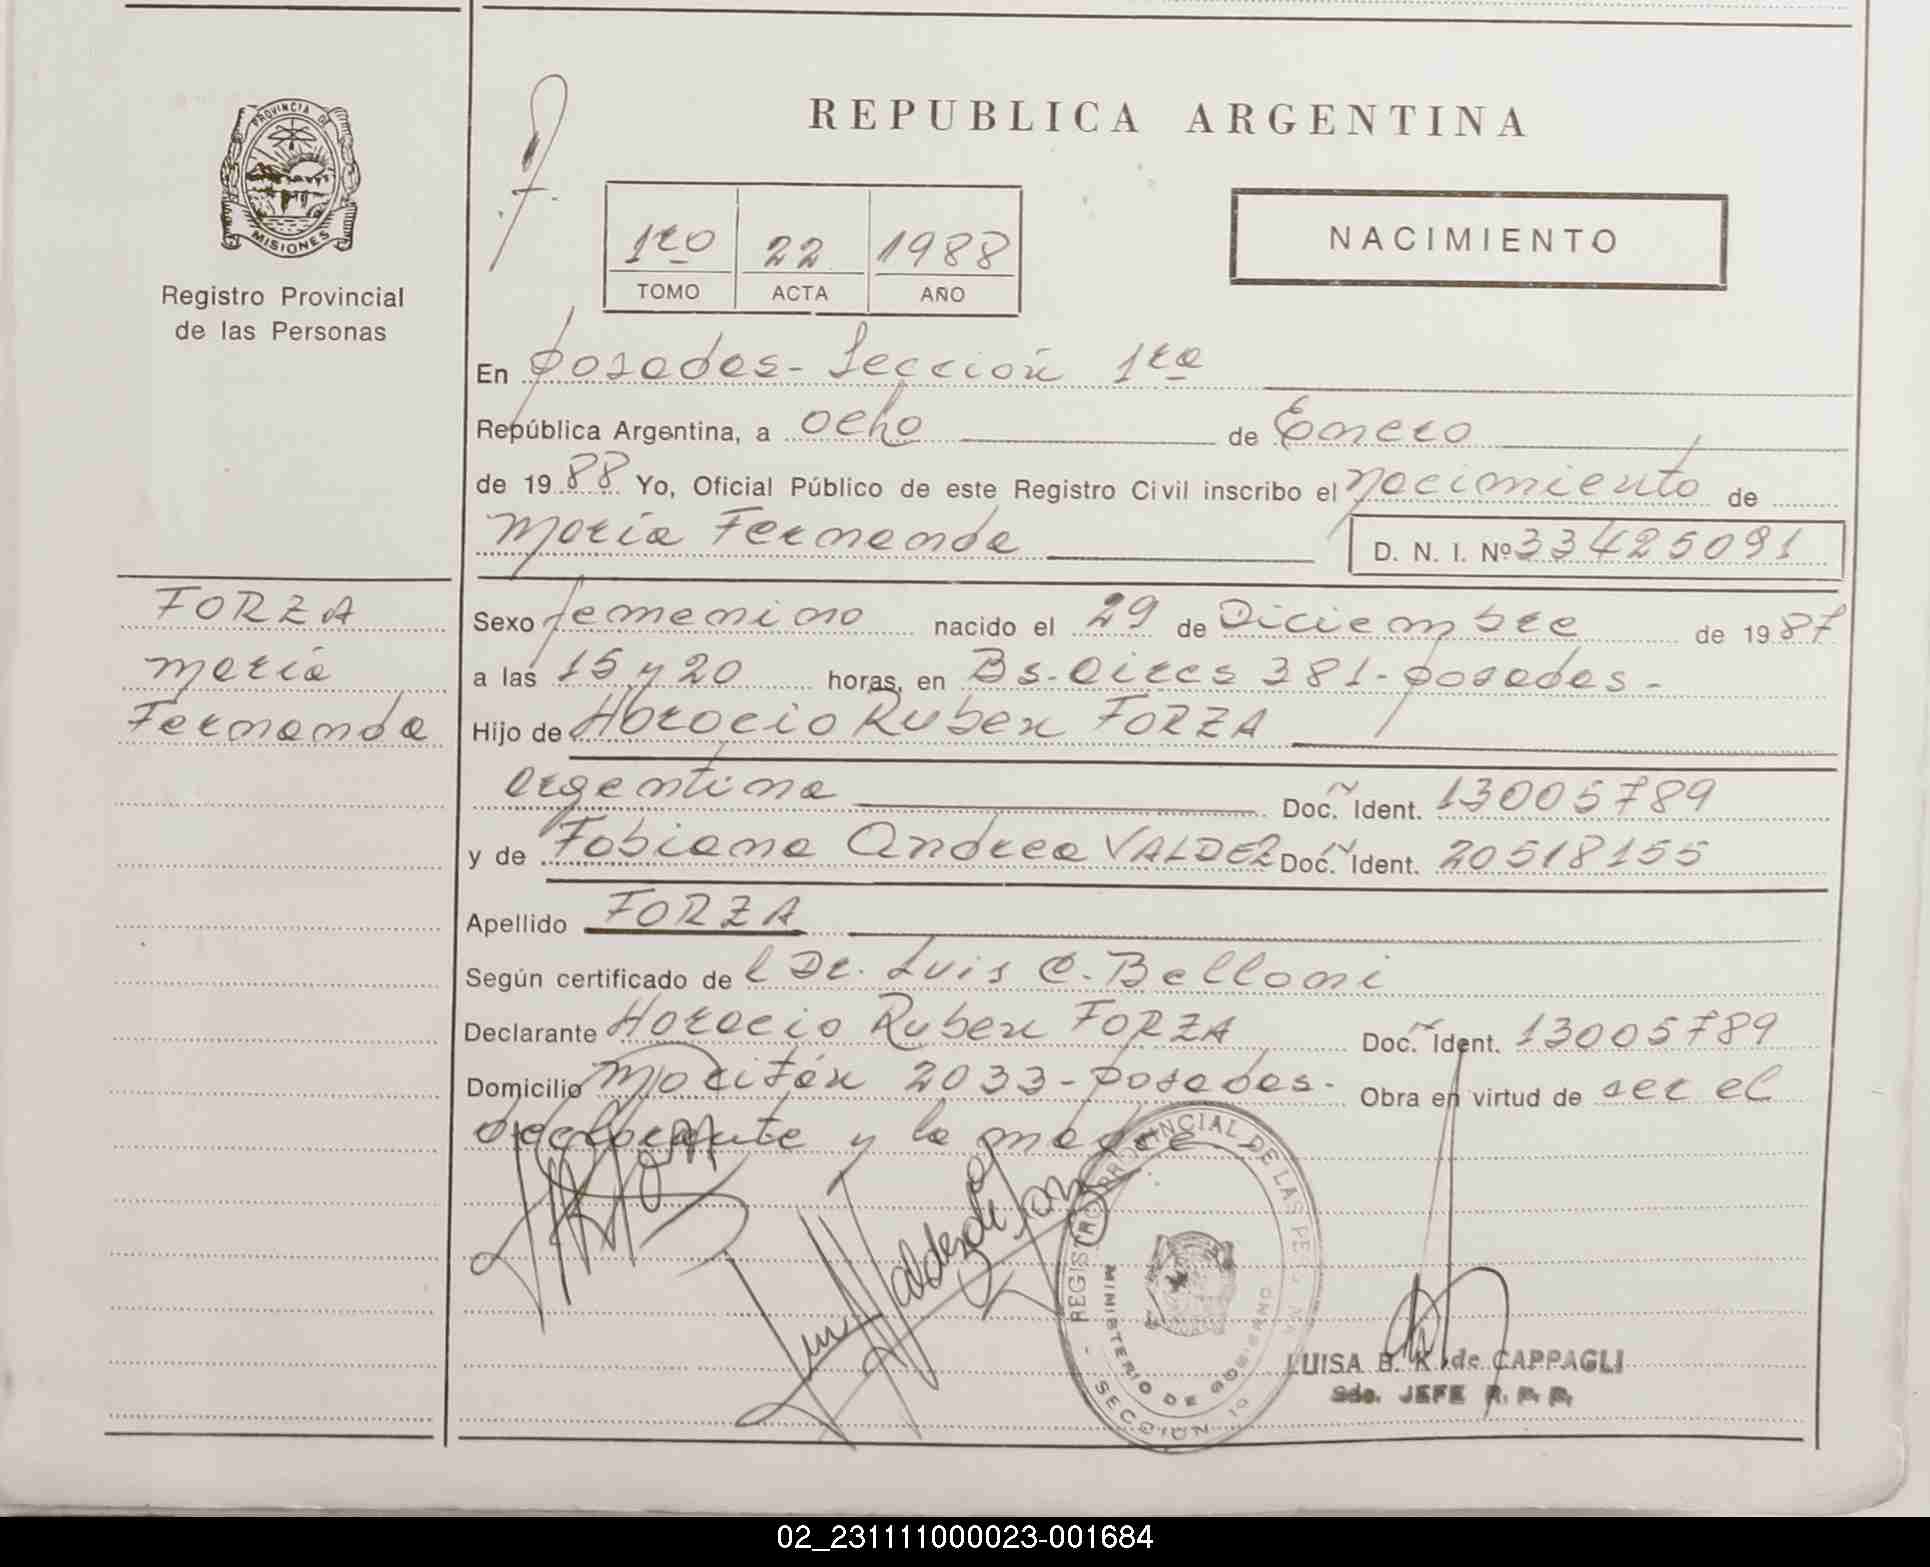 PROVINCIA DE
MISIONES
Registro Provincial
de las Personas
REPUBLICA ARGENTINA
1ro 22 1988
TOMO ACTA AÑO
NACIMIENTO
En posadas - Sección 1ra
República Argentina, a ocho de Enero
de 1988 Yo, Oficial Público de este Registro Civil inscribo el nacimiento de
María Fernanda D. N. I. Nº 33425091
FORZA
María
Fernanda
Sexo femenino nacido el 29 de Diciembre de 1987
a las 15 y 20 horas, en Bs. Aires 381 - posadas -
Hijo de Horacio Ruben FORZA
argentina Doc. Ident. 13005789
y de Fabiana Andrea VALDEZ Doc. Ident. 20518155
Apellido FORZA
Según certificado de l Dr. Luis C. Belloni
Declarante Horacio Ruben FORZA Doc. Ident. 13005789
Domicilio 2033 - posadas - Obra en virtud de ser el
declarante y la madre
REGISTRO PROVINCIAL DE LAS
MINISTERIO DE GOBIERNO
SECCION 1ª
LUISA B. K. de CAPPAGLI
Sdo. JEFE R. P. P.
02_231111000023-001684